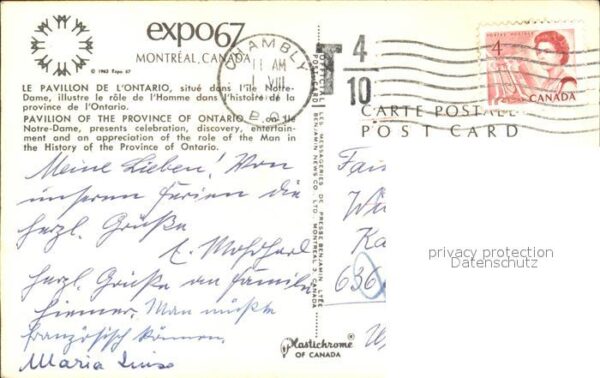 expo67
MONTRÉAL, CANADA
© 1963 Expo 67
LE PAVILLON DE L'ONTARIO, situé dans l'île Notre-
Dame, illustre le rôle de l'Homme dans l'histoire de la
province de l'Ontario.
PAVILION OF THE PROVINCE OF ONTARIO on Ile
Notre-Dame, presents celebration, discovery, entertain-
ment and an appreciation of the role of the Man in
the History of the Province of Ontario.
Meine Lieben! Von
unseren Ferien die
herzl. Grüße
herzl. Grüße an Familie
Man müßte
französisch können.
Maria Luise
Plastichrome®
OF CANADA
LES MESSAGERIES DE PRESSE BENJAMIN LTÉE
BENJAMIN NEWS CO. LTD. MONTREAL 3, CANADA
CHAMBLY
11 AM
1 VIII
P.Q.
T 4
10
POSTES POSTAGE
4
CANADA
CARTE POSTALE
POST CARD
Ka
636
privacy protection
Datenschutz